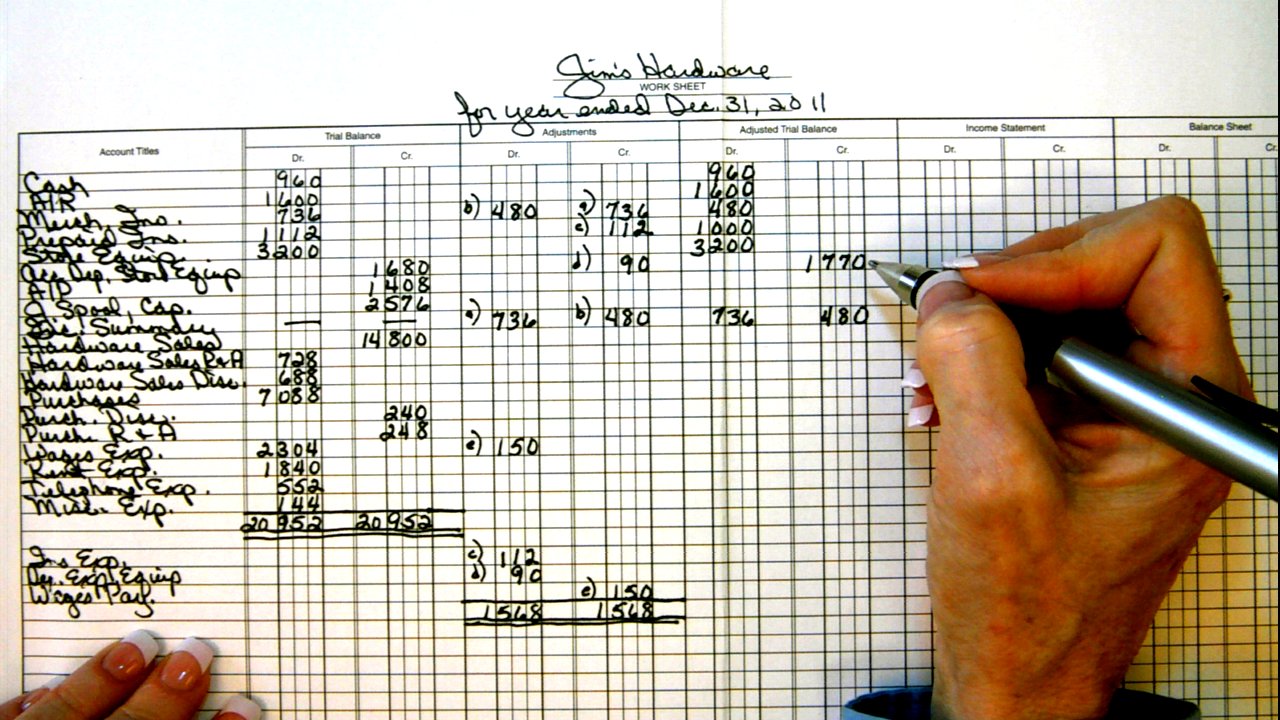 Jim's Hardware
WORK SHEET
for year ended Dec. 31, 2011
Trial Balance Adjustments Adjusted Trial Balance Income Statement Balance Sheet
Account Titles Dr. Cr. Dr. Cr. Dr. Cr. Dr. Cr. Dr. Cr.
Cash 960 960
A/R 1600 1600
Merch. Inv. 736 b) 480 a) 736 480
Prepaid Ins. 1112 c) 112 1000
Store Equip. 3200 3200
Acc. Dep. Store Equip 1680 d) 90 1770
A/P 1408
J. Spool, Cap. 2576
Inc. Summary — — a) 736 b) 480 736 480
Hardware Sales 14800
Hardware Sales R&A 728
Hardware Sales Disc. 688
Purchases 7088
Purch. Disc. 240
Purch. R&A 248
Wages Exp. 2304 e) 150
Rent Exp. 1840
Telephone Exp. 552
Misc. Exp. 144
20952 20952
Ins. Exp. c) 112
Dep. Exp. Equip d) 90
Wages Pay. e) 150
1568 1568